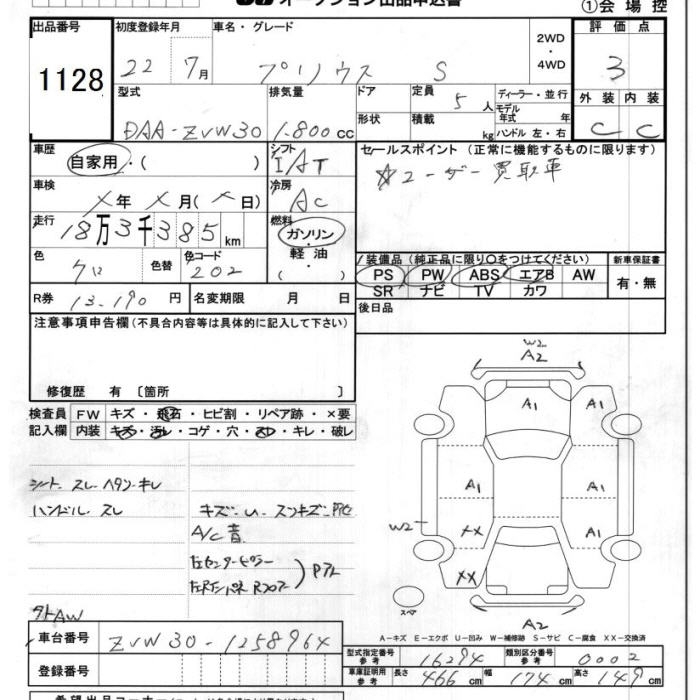 オークション出品申込書
①会場控
出品番号 初度登録年月 車名・グレード 2WD・4WD 評価点
1128 22 7月 プリウス S 3
型式 排気量 ドア 定員 5人 ディーラー・並行 外装 内装
DAA-ZVW30 1.800cc 形状 積載 kg モデル年式 年 ハンドル 左・右 C C
車歴 自家用・( ) シフト IAT セールスポイント (正常に機能するものに限ります)
車検 ×年 ×月(×日) 冷房 AC ☆ユーザー買取車
走行 18万3千385km 燃料 ガソリン・軽油・( )
色 クロ 色替 色コード 202 装備品(純正品に限り○をつけてください) 新車保証書
PS PW ABS エアB AW 有・無
SR ナビ TV カワ
R券 13.190円 名変期限 月 日 後日品
注意事項申告欄(不具合内容等は具体的に記入して下さい)
修復歴 有 〔箇所 〕
検査員記入欄 FW キズ・飛石・ヒビ割・リペア跡・×要
内装 キズ・汚レ・コゲ・穴・スレ・キレ・破レ
シート スレ ヘタリ キレ
ハンドル スレ
A/C音
タトAW
W2
A2
A1 A1
A1 A1
W2 XX A1
XX
スペア
A2
A-キズ E-エクボ U-凹み W-補修跡 S-サビ C-腐食 XX-交換済
車台番号 ZVW30-1258964
型式指定番号 参考 16294 類別区分番号 参考 0002
登録番号 車庫証明用 参考 長さ 466cm 幅 174cm 高さ 149cm